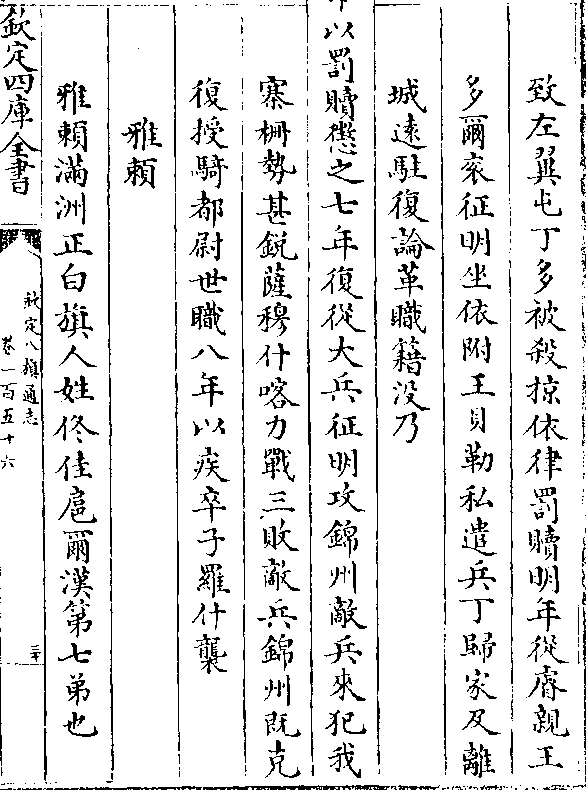 致左翼屯丁多被殺掠依律罰贖明年從睿親王
多爾衮征明坐依附王貝勒私遣兵丁歸家及離
城遠駐復論革職籍没乃
以罰贖懲之七年復從大兵征明攻錦州敵兵來犯我
寨柵勢甚鋭薩穆什喀力戰三敗敵兵錦州既克
復授騎都尉世職八年以疾卒子羅什襲
雅賴
雅賴滿洲正白旗人姓佟佳扈爾漢第七弟也
欽定四庫全書
欽定八旗通志
卷一百五十六
三十